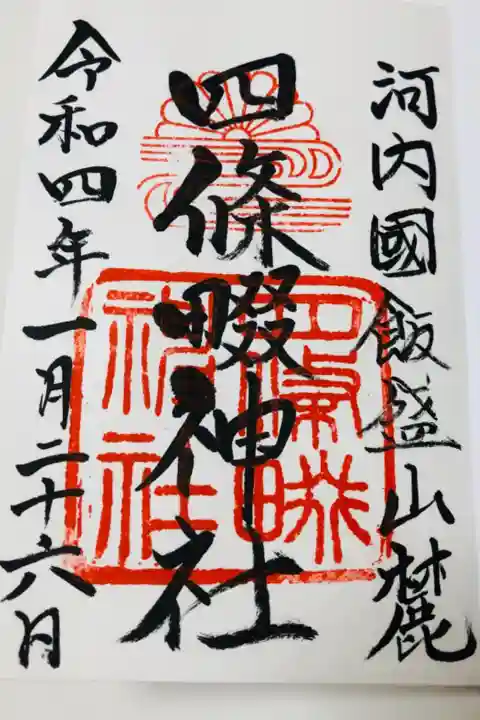 河内國飯盛山麓
四條畷神社
四條畷神社
令和四年一月二十六日